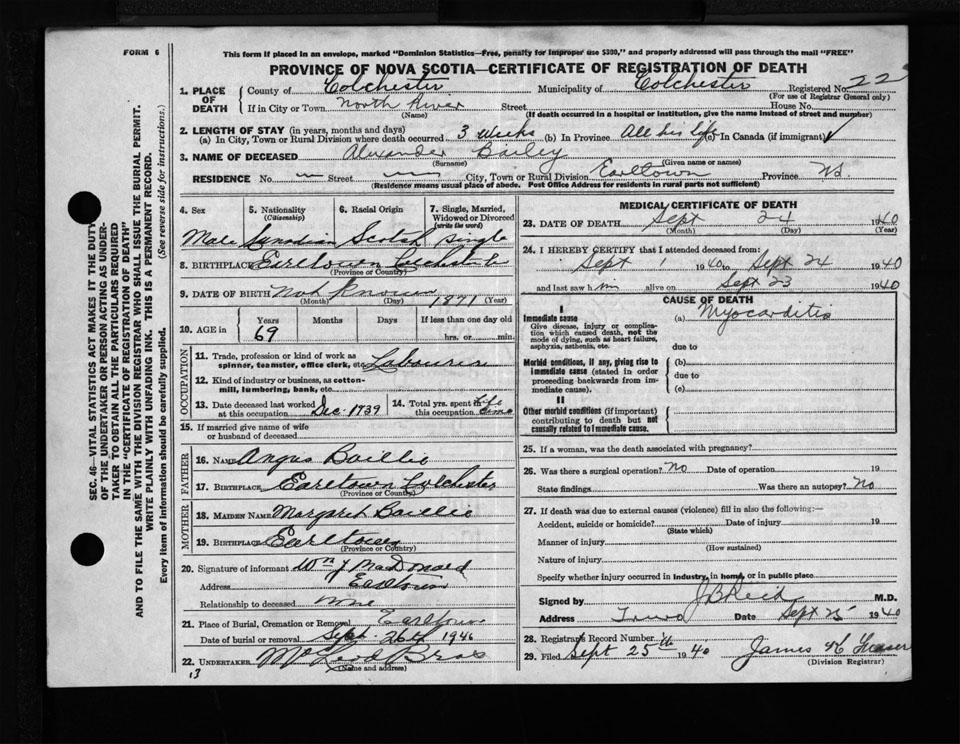 FORM 6
This form if placed in an envelope, marked "Dominion Statistics—Free, penalty for improper use $300," and properly addressed will pass through the mail "FREE"
PROVINCE OF NOVA SCOTIA—CERTIFICATE OF REGISTRATION OF DEATH
1. PLACE OF DEATH County of Colchester Municipality of Colchester Registered No. 22
(For use of Registrar General only)
If in City or Town North River Street House No.
(Name) (If death occurred in a hospital or institution, give the name instead of street and number)
2. LENGTH OF STAY (in years, months and days)
(a) In City, Town or Rural Division where death occurred 3 weeks (b) In Province All his life (c) In Canada (if immigrant)
3. NAME OF DECEASED Alexander Bailey
(Surname) (Given name or names)
RESIDENCE No. Street City, Town or Rural Division Earltown Province NS.
(Residence means usual place of abode. Post Office Address for residents in rural parts not sufficient)
4. Sex 5. Nationality (Citizenship) 6. Racial Origin 7. Single, Married, Widowed or Divorced (write the word)
Male Canadian Scotch Single
8. BIRTHPLACE Earltown Colchester Co
(Province or Country)
9. DATE OF BIRTH Not Known 1871 (Year)
(Month) (Day)
10. AGE in Years Months Days If less than one day old
69 hrs. or min.
OCCUPATION
11. Trade, profession or kind of work as spinner, teamster, office clerk, etc. Labourer
12. Kind of industry or business, as cotton-mill, lumbering, bank, etc.
13. Date deceased last worked at this occupation Dec. 1939 14. Total yrs. spent in this occupation Life time
15. If married give name of wife or husband of deceased
FATHER
16. NAME Angus Baillie
17. BIRTHPLACE Earltown Colchester
(Province or Country)
MOTHER
18. MAIDEN NAME Margaret Baillie
19. BIRTHPLACE Earltown
(Province or Country)
20. Signature of informant Wm J MacDonald
Address Earltown
Relationship to deceased none
21. Place of Burial, Cremation or Removal Earltown
Date of burial or removal Sept. 26th 1940
22. UNDERTAKER McLeod Bros
(Name and address)
13
MEDICAL CERTIFICATE OF DEATH
23. DATE OF DEATH Sept 24 1940
(Month) (Day) (Year)
24. I HEREBY CERTIFY that I attended deceased from:
Sept 1 1940 to Sept 24 1940
and last saw h im alive on Sept 23 1940
CAUSE OF DEATH
I
Immediate cause (a) Myocarditis
Give disease, injury or complication which caused death, not the mode of dying, such as heart failure, asphyxia, asthenia, etc.
due to
Morbid conditions, if any, giving rise to immediate cause (stated in order proceeding backwards from immediate cause).
(b)
due to
(c)
II
Other morbid conditions (if important) contributing to death but not causally related to immediate cause.
25. If a woman, was the death associated with pregnancy?
26. Was there a surgical operation? No Date of operation 19
State findings Was there an autopsy? No
27. If death was due to external causes (violence) fill in also the following:—
Accident, suicide or homicide? Date of injury 19
(State which)
Manner of injury
(How sustained)
Nature of injury
Specify whether injury occurred in industry, in home, or in public place
Signed by J B Reid M.D.
Address Truro Date Sept 25 1940
28. Registrar's Record Number
29. Filed Sept 25th 1940 James K Fraser
(Division Registrar)
SEC. 46—VITAL STATISTICS ACT MAKES IT THE DUTY
OF THE UNDERTAKER OR PERSON ACTING AS UNDER-
TAKER TO OBTAIN ALL THE PARTICULARS REQUIRED
IN THE "CERTIFICATE OF REGISTRATION OF DEATH"
AND TO FILE THE SAME WITH THE DIVISION REGISTRAR WHO SHALL ISSUE THE BURIAL PERMIT.
WRITE PLAINLY WITH UNFADING INK. THIS IS A PERMANENT RECORD.
Every item of information should be carefully supplied. (See reverse side for instructions.)